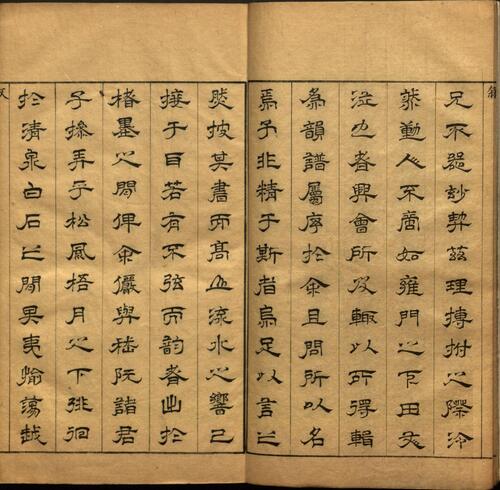 兄不玅契茲理搏拊之際泠
然動人不啻如雍門之下田文
泣也者興會所及輒以所得輯
為韻譜屬序於余且問所以名
焉予非精于斯者烏足以言之
然披其書而高山流水之響已
接于目若有不弦而韵者出於
楮墨之間俾余儼與嵇阮諸君
子摻弄乎松風梧月之下徘徊
於清泉白石之間果夷愉蕩越